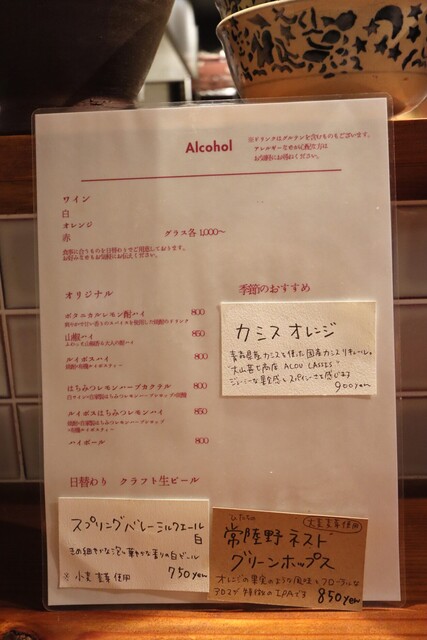 Alcohol
※ドリンクはグルテンを含むものもございます。
アレルギーなどが心配な方は
お気軽にお尋ねください。
ワイン
白
オレンジ
赤
グラス各 1,000〜
食事に合うものを日替わりでご用意しております。
お好みなどもお気軽にお伝えください。
オリジナル
ボタニカルレモン酎ハイ 800
山椒ハイ 850
ルイボスハイ 800
はちみつレモンハーブカクテル 800
ルイボスはちみつレモンハイ 850
ハイボール 800
季節のおすすめ
カシス オレンジ
青森県産カシスを使った国産カシスリキュール。
ジューシーな果実感とスパイシーさを感じます
900yen
日替わり クラフト生ビール
スプリングバレーシルクエール
白
きめ細やかな泡と華やかな香りの白ビール
※小麦麦芽使用
750yen
大麦麦芽使用
ひたちの
常陸野ネスト
グリーンホップス
オレンジの果実のような風味とフローラルな
アロマが特徴のIPAです
850yen